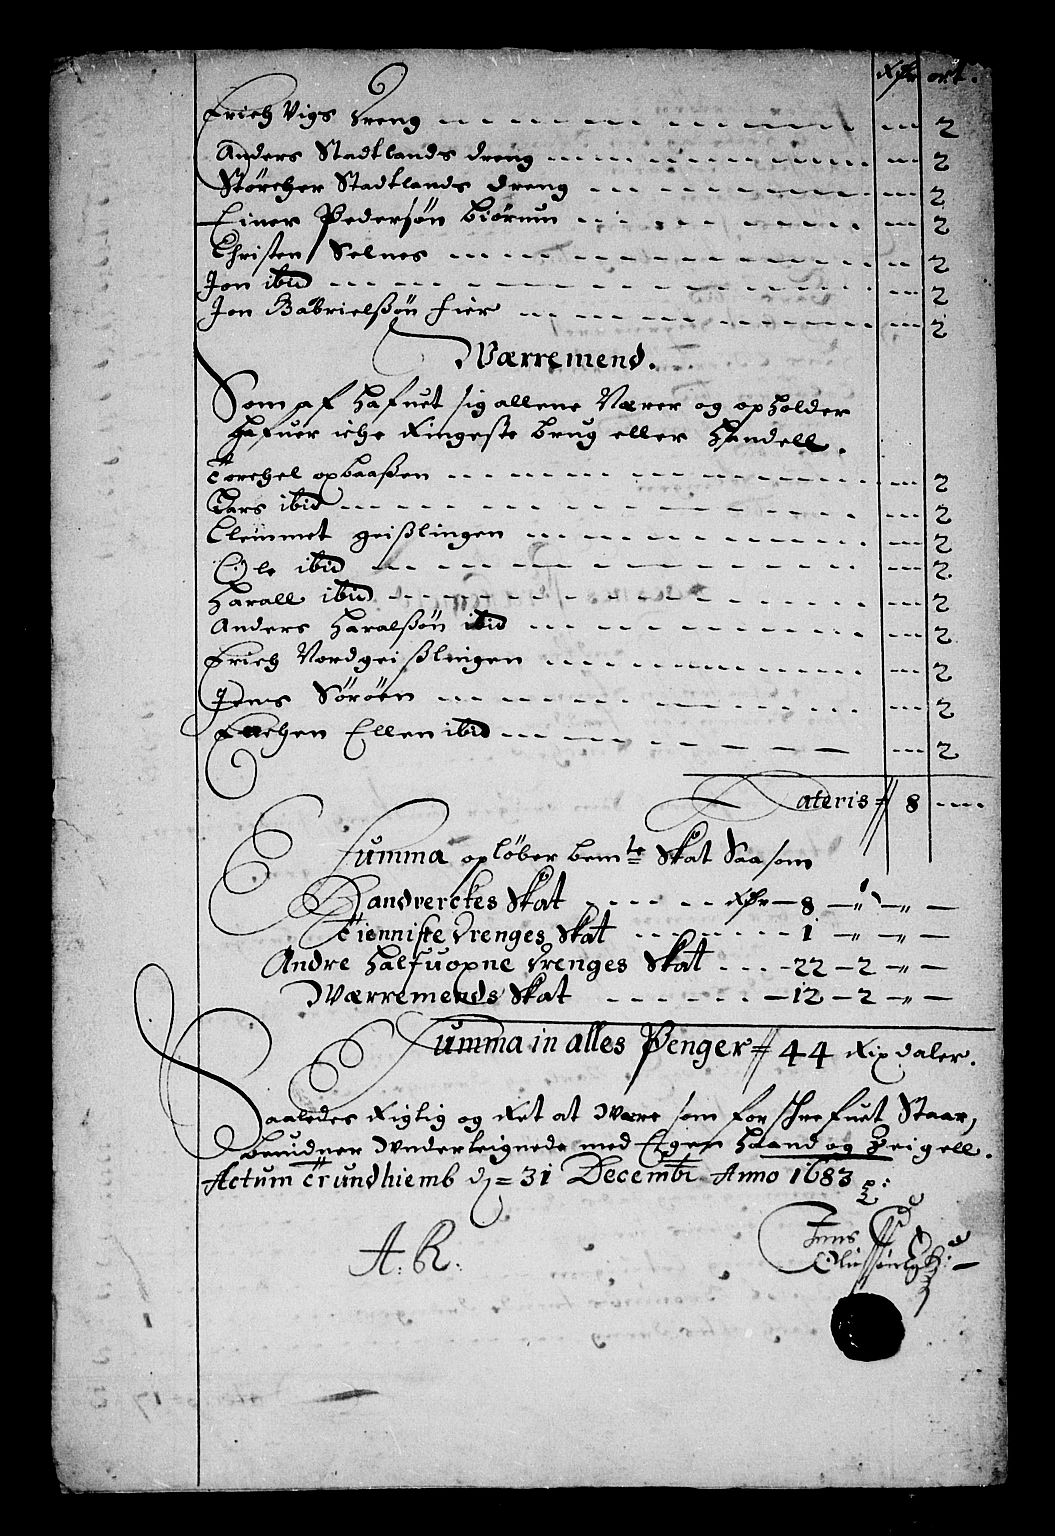 Rdr ort.
Erich Vigs dreng --- 2
Anders Stadtlands dreng --- 2
Storcher Stadtlands dreng --- 2
Einer Pedersøn biørnun --- 2
Christen Selnes --- 2
Jon ibid --- 2
Jon Gabrielßøn Eier --- 2
Wærremend.
Som af hafuet sig allene Nærer og opholder
hafuer iche Ringeste brug eller handell.
Torchel ophaaßen --- 2
Lars ibid --- 2
Clemmet geißlingen --- 2
Ole ibid --- 2
Harall ibid --- 2
Anders Haralßøn ibid --- 2
Erich Nordgeißlingen --- 2
Jens Sørøen --- 2
Enchen Ellen ibid --- 2
Lateris 8 ---
Summa opløber bemte Skat Saasom
Handverckes Skat --- Rdr 8 – " – " –
Tienniste drenges Skat --- 1 – " – " –
Andre halfuopne drenges Skat --- 22 – 2 – " –
Wærremends Skat --- 12 – 2 – " –
Summa in alles Penger 44 Rixdaler.
Saaledes Rigtig og Ret at Were som forschrefuet Staar,
beuidner Underteignede med Egen Haand og Zeigell.
Actum Trundhiemb d. 31 Decembr Anno 1683
A. R.
Jens
Olufsøn